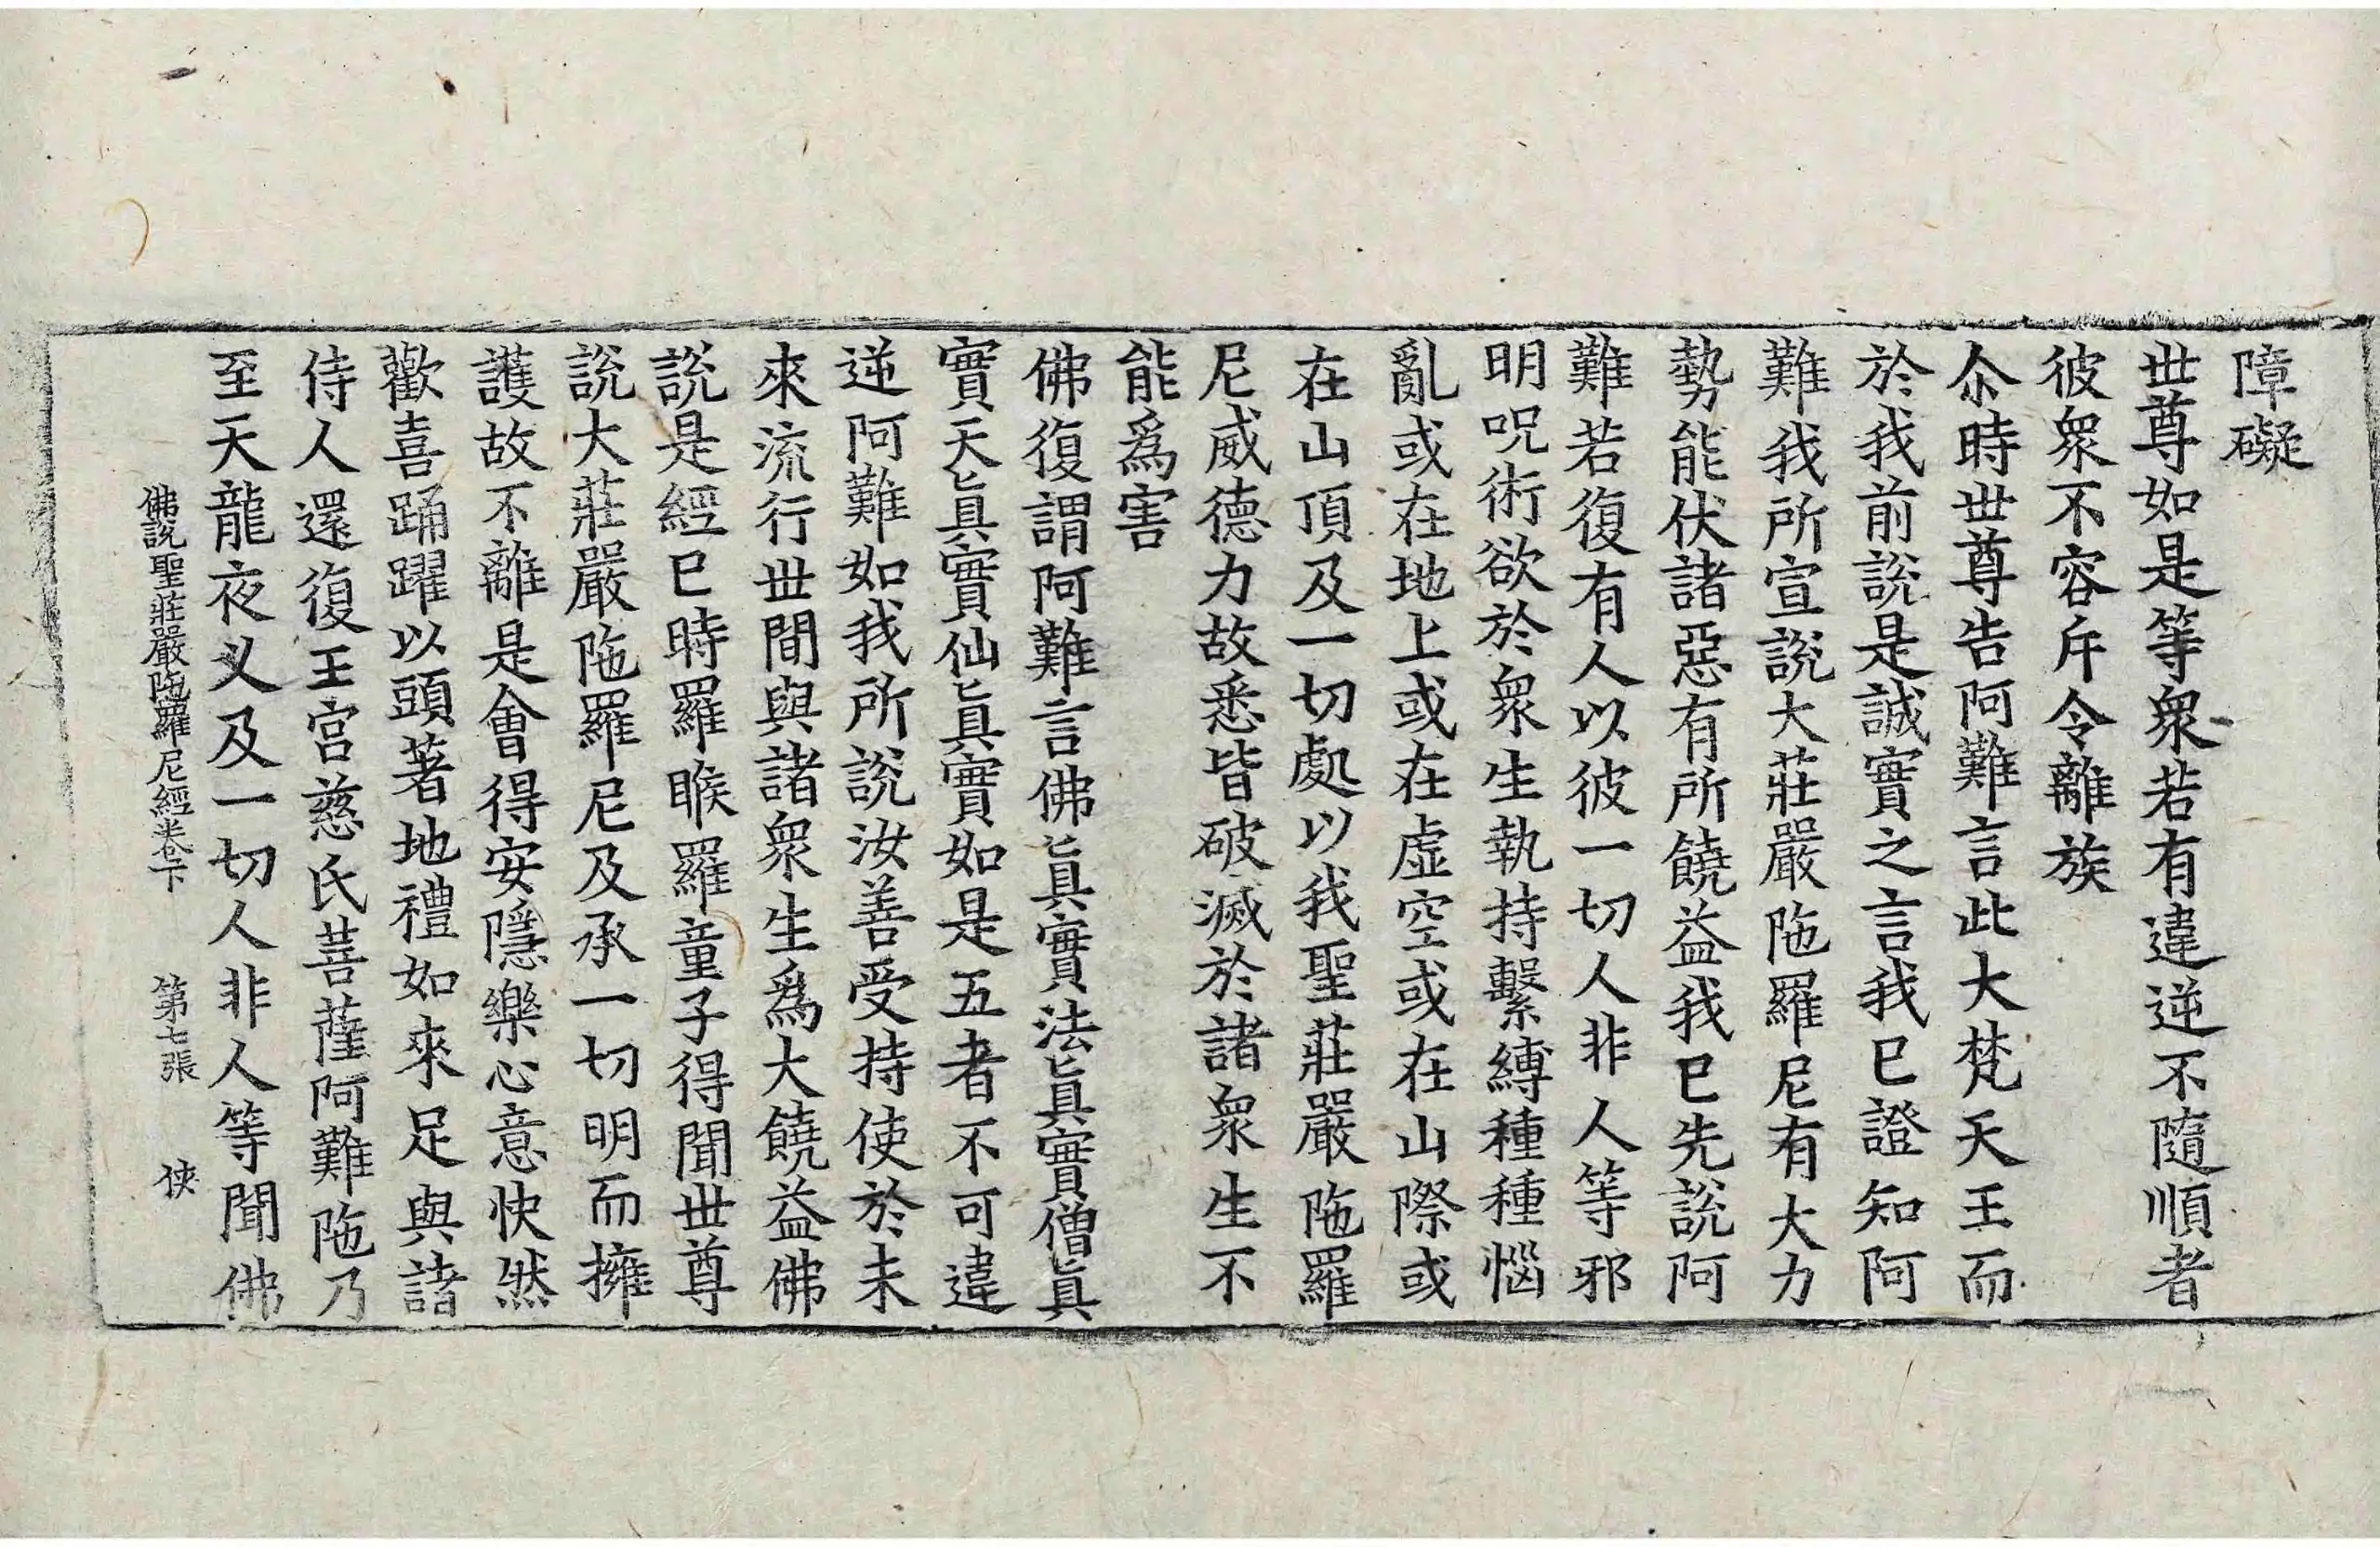 障礙
世尊如是等衆若有違逆不隨順者
彼衆不容斥令離族
尒時世尊告阿難言此大梵天王而
於我前說是誠實之言我已證知阿
難我所宣說大莊嚴陁羅尼有大力
勢能伏諸惡有所饒益我已先說阿
難若復有人以彼一切人非人等邪
明呪術欲於衆生執持繫縛種種惱
亂或在地上或在虛空或在山際或
在山頂及一切處以我聖莊嚴陁羅
尼威德力故悉皆破滅於諸衆生不
能爲害
佛復謂阿難言佛眞實法眞實僧眞
實天眞實仙眞實如是五者不可違
逆阿難如我所說汝善受持使於未
來流行世間與諸衆生爲大饒益佛
說是經已時羅睺羅童子得聞世尊
說大莊嚴陁羅尼及承一切明而擁
護故不離是會得安隱樂心意快然
歡喜踊躍以頭著地禮如來足與諸
侍人還復王宮慈氏菩薩阿難陁乃
至天龍夜叉及一切人非人等聞佛
佛說聖莊嚴陁羅尼經卷下 第七張 俠